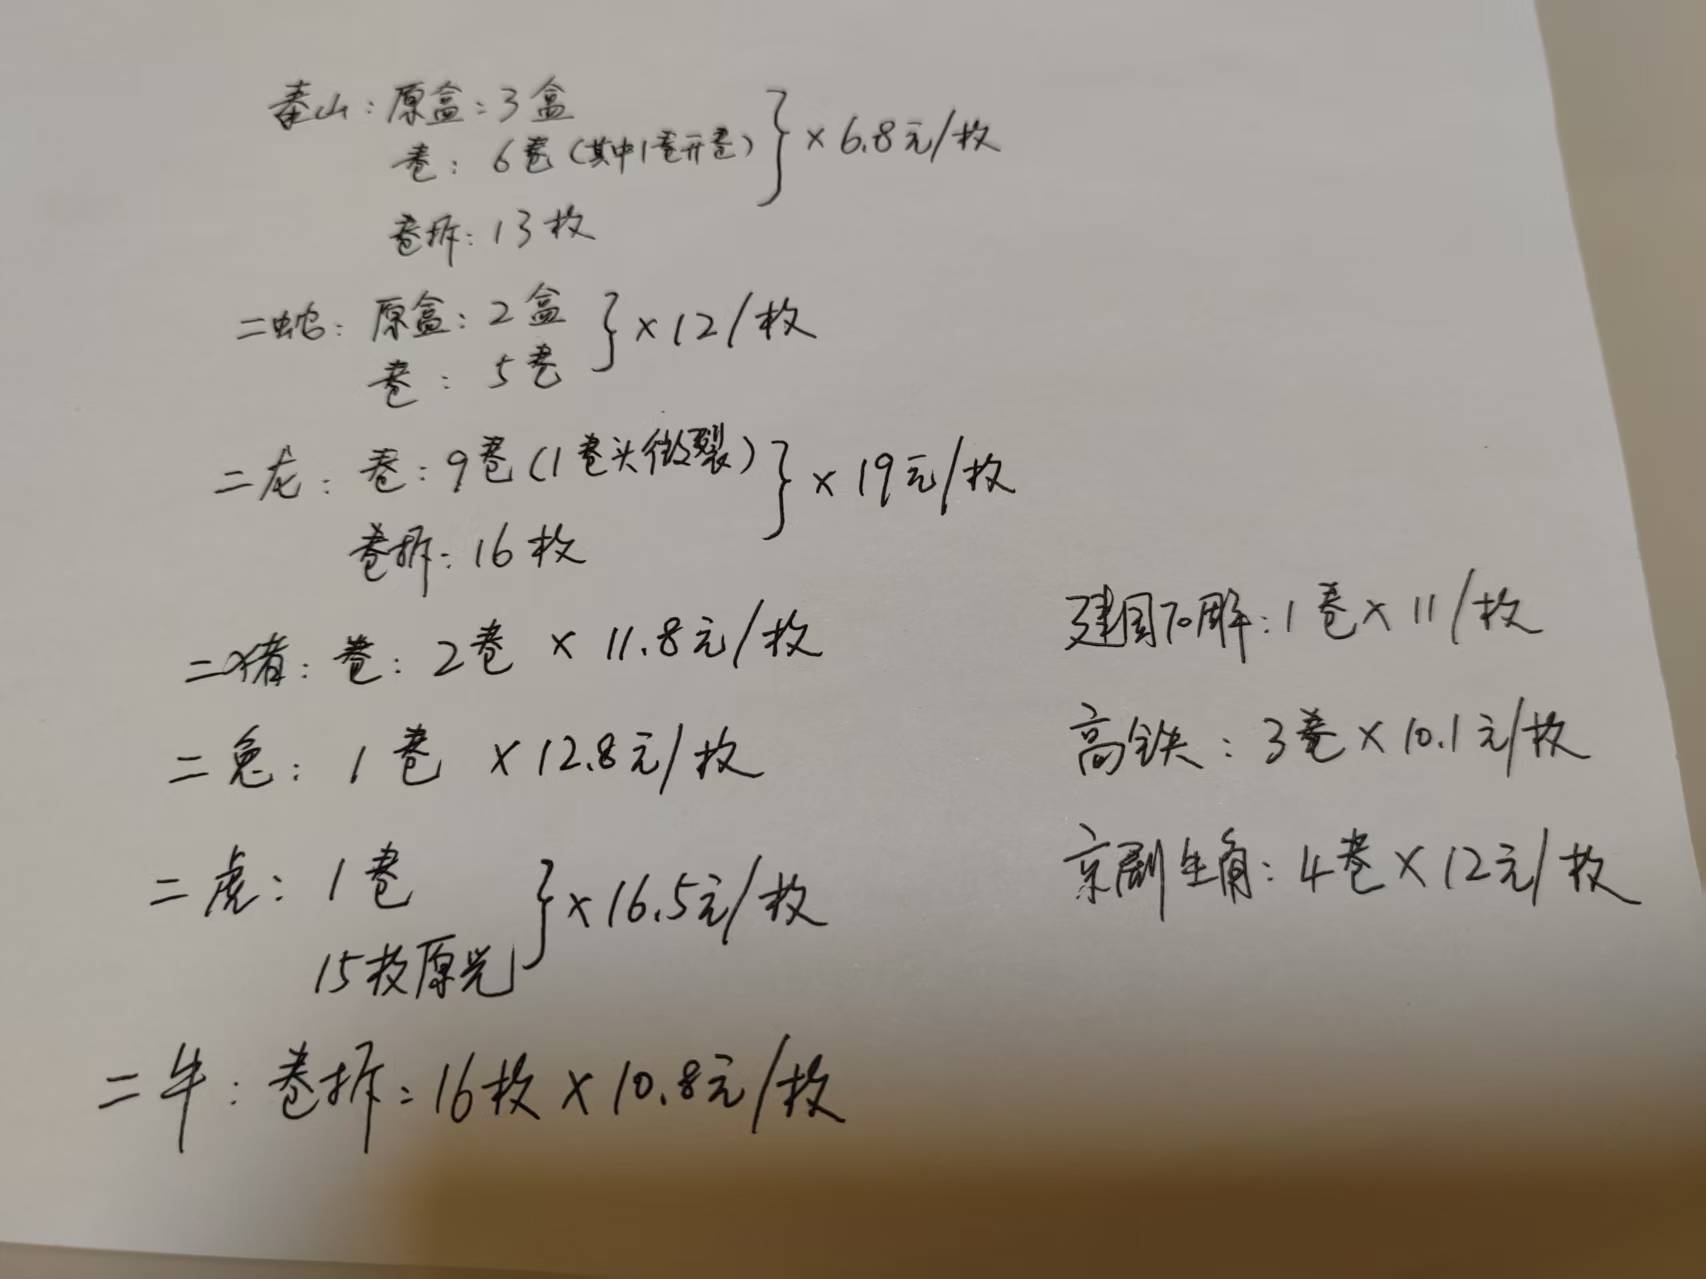 泰山：原盒：3盒
卷：6卷（其中1卷开卷） } ×6.8元/枚
卷拆：13枚
二蛇：原盒：2盒
卷：5卷 } ×12/枚
二龙：卷：9卷（1卷头微裂）
卷拆：16枚 } ×19元/枚
二猪：卷：2卷 ×11.8元/枚
二兔：1卷 ×12.8元/枚
二虎：1卷
15枚原光 } ×16.5元/枚
二牛：卷拆：16枚×10.8元/枚
建国石雕：1卷×11/枚
高铁：3卷×10.1元/枚
京剧生角：4卷×12元/枚